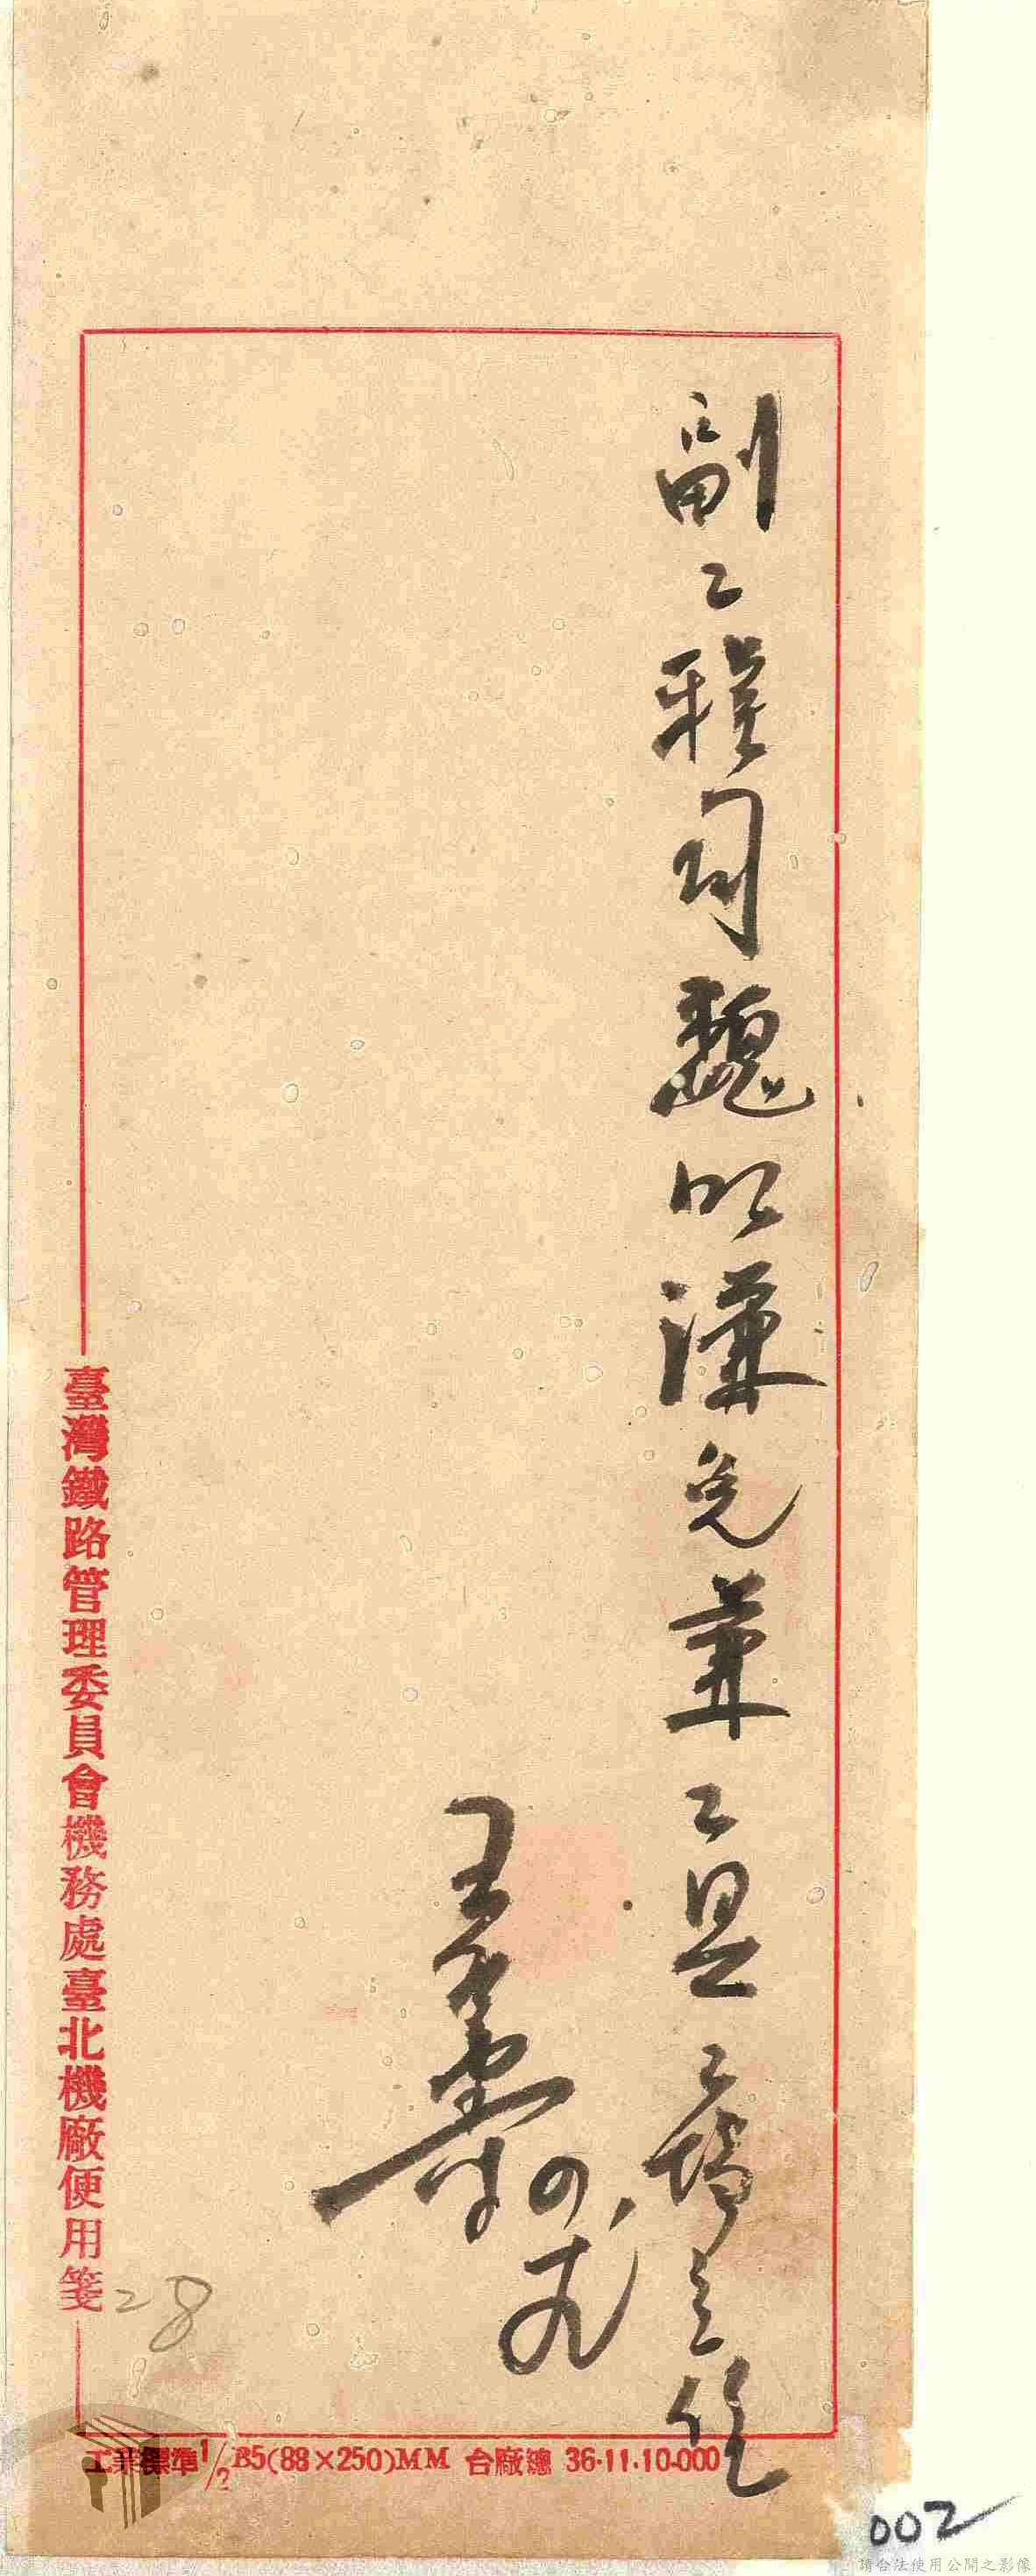 副工程司魏以謙免兼工具工場主任
王
四
九
臺灣鐵路管理委員會機務處臺北機廠便用箋
28
工業標準1/2B5(88×250)MM 台廠總 36·11·10.000
002
請合法使用公開之影像